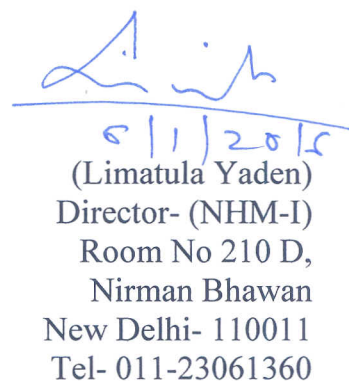 6/1/2015
(Limatula Yaden)
Director- (NHM-I)
Room No 210 D,
Nirman Bhawan
New Delhi- 110011
Tel- 011-23061360